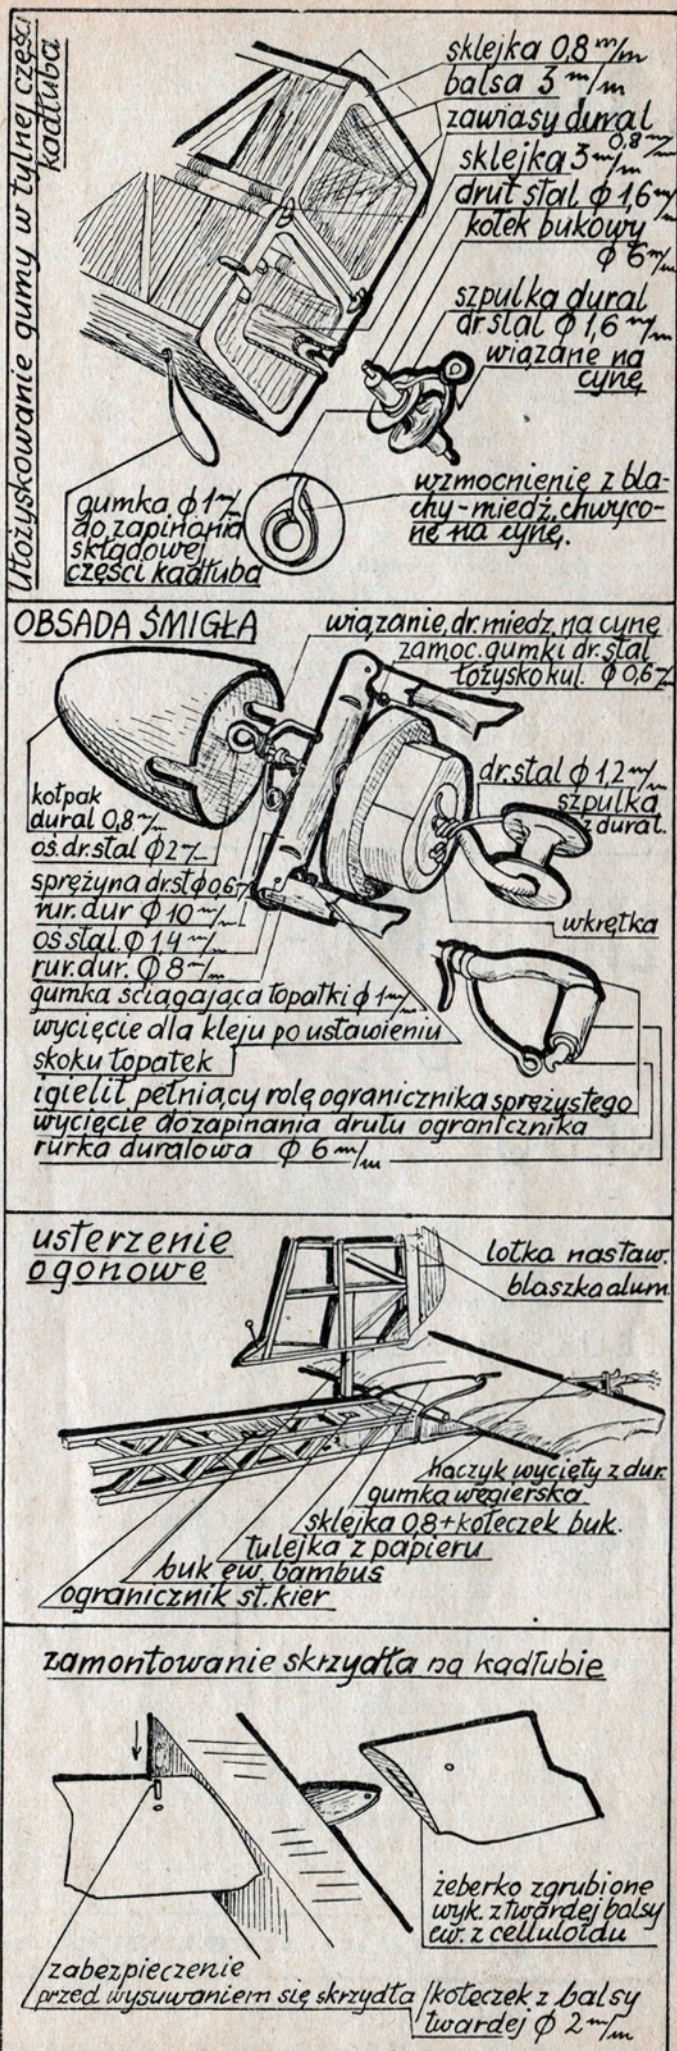 Ułożyskowanie gumy w tylnej części
kadłuba
sklejka 0,8 m/m
balsa 3 m/m
zawiasy dural
0,8 m/m
sklejka 3 m/m
drut stal ϕ 1,6 m/m
kołek bukowy
ϕ 6 m/m
szpulka dural
dr. stal ϕ 1,6 m/m
wiązane na
cynę
wzmocnienie z bla-
chy-miedź, chwyco-
ne na cynę.
gumka ϕ 1 m/m
do zapinania
składowej
części kadłuba
OBSADA ŚMIGŁA
wiązanie, dr. miedz. na cynę
zamoc. gumki dr. stal
łożysko kul. ϕ 0,6 m/m
dr. stal ϕ 1,2 m/m
szpulka
z dural.
wkrętka
kołpak
dural 0,8 m/m
oś. dr. stal ϕ 2 m/m
sprężyna dr. st ϕ 0,6 m/m
rur. dur ϕ 10 m/m
oś stal. ϕ 1,4 m/m
rur. dur. ϕ 8 m/m
gumka ściągająca łopatki ϕ 1 m/m
wycięcie dla kleju po ustawieniu
skoku łopatek
igielit pełniący rolę ogranicznika sprężystego
wycięcie do zapinania drutu ogranicznika
rurka duralowa ϕ 6 m/m
usterzenie
ogonowe
lotka nastaw.
blaszka alum.
haczyk wycięty z dur.
gumka węgierska
sklejka 0,8 + kołeczek buk.
tulejka z papieru
buk ew. bambus
ogranicznik st. kier
zamontowanie skrzydła na kadłubie
żeberko zgrubione
wyk. z twardej balsy
ew. z celluloidu
zabezpieczenie
przed wysuwaniem się skrzydła
kołeczek z balsy
twardej ϕ 2 m/m